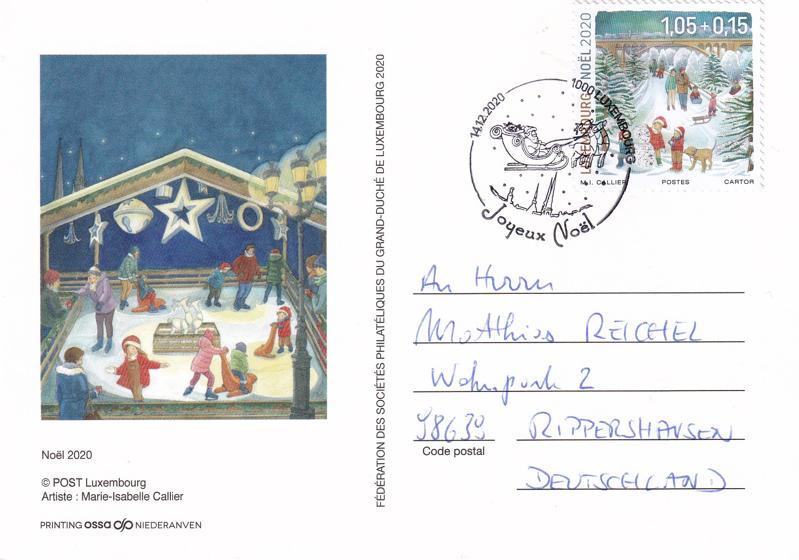 Noël 2020
© POST Luxembourg
Artiste : Marie-Isabelle Callier
PRINTING ossa NIEDERANVEN
FÉDÉRATION DES SOCIÉTÉS PHILATÉLIQUES DU GRAND-DUCHÉ DE LUXEMBOURG 2020
14.12.2020
1000 LUXEMBOURG
Joyeux Noël
1,05+0,15
LUXEMBOURG NOËL 2020
M.I. CALLIER POSTES CARTOR
An Herrn
Matthias REICHEL
Wohnpark 2
98639
RIPPERSHAUSEN
Code postal
DEUTSCHLAND